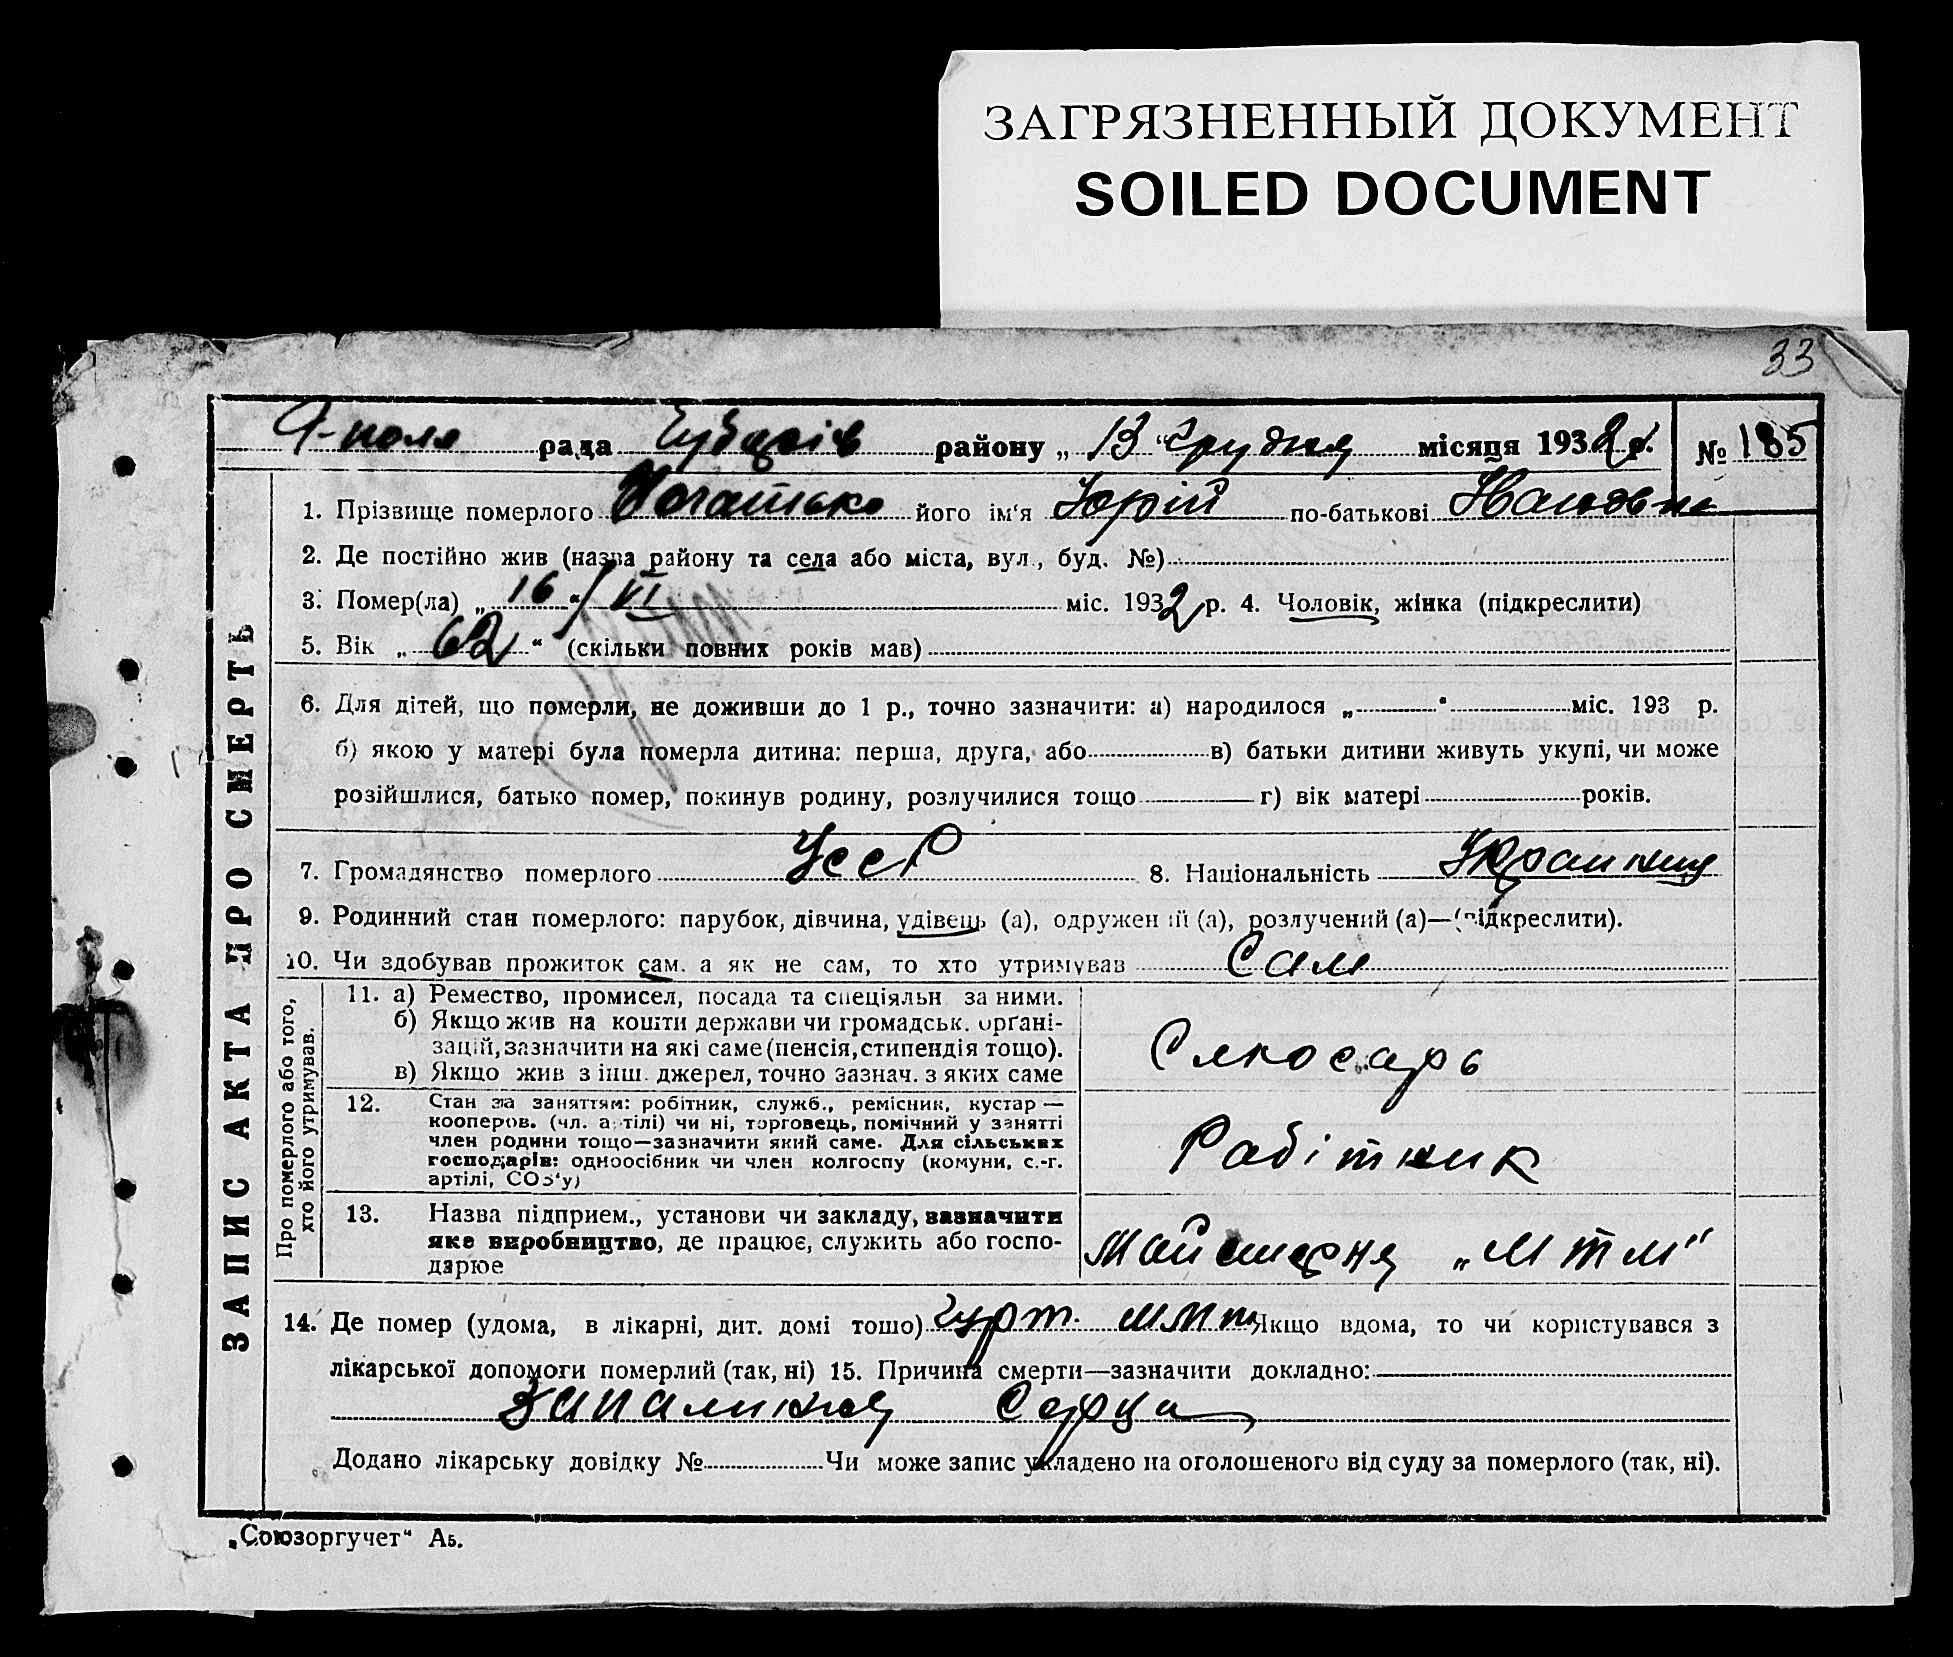 ЗАГРЯЗНЕННЫЙ ДОКУМЕНТ
SOILED DOCUMENT
33
рада району „13“ Грудня місяця 1932 р. № 185
1. Прізвище померлого його ім‘я Юрій по-батькові
2. Де постійно жив (назва району та села або міста, вул., буд. №)
3. Помер(ла) „16“ / VI міс. 1932 р. 4. Чоловік, жінка (підкреслити)
5. Вік „62“ (скільки повних років мав)
6. Для дітей, що померли, не доживши до 1 р., точно зазначити: а) народилося „ “ міс. 193 р.
б) якою у матері була померла дитина: перша, друга, або в) батьки дитини живуть укупі, чи може
розійшлися, батько помер, покинув родину, розлучилися тощо г) вік матері років.
7. Громадянство померлого УССР 8. Національність
9. Родинний стан померлого: парубок, дівчина, удівець (а), одружений (а), розлучений (а)—(підкреслити).
10. Чи здобував прожиток сам. а як не сам, то хто утримував Сам
11. а) Ремество, промисел, посада та спеціяльн за ними.
б) Якщо жив на кошти держави чи громадськ. орґані-
зацій, зазначити на які саме (пенсія, стипендія тощо).
в) Якщо жив з інш. джерел, точно зазнач. з яких саме
Слюсарь
12. Стан за заняттям: робітник, служб., ремісник, кустар —
кооперов. (чл. артілі) чи ні, торговець, помічний у занятті
член родини тощо—зазначити який саме. Для сільських
господарів: одноосібник чи член колгоспу (комуни, с.-г.
артілі, СОЗ‘у)
Робітник
13. Назва підприєм., установи чи закладу, зазначити
яке виробництво, де працює, служить або госпо-
дарює
Майстерня „МТМ“
14. Де помер (удома, в лікарні, дит. домі тощо) Гурт. Якщо вдома, то чи користувався з
лікарської допомоги померлий (так, ні) 15. Причина смерти—зазначити докладно:
Запалиння Серця
Додано лікарську довідку № Чи може запис укладено на оголошеного від суду за померлого (так, ні).
ЗАПИС АКТА ПРО СМЕРТЬ
Про померлого або того,
хто його утримував.
„Союзоргучет“ Аь.